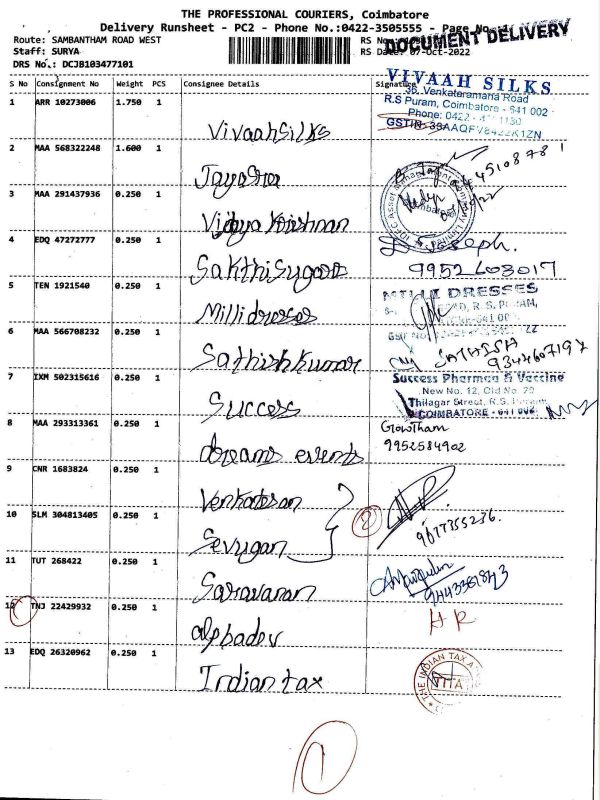 THE PROFESSIONAL COURIERS, Coimbatore
Delivery Runsheet - PC2 - Phone No.:0422-3505555 - Page No. 1
DOCUMENT DELIVERY
Route: SAMBANTHAM ROAD WEST
Staff: SURYA
RS Date: 07-Oct-2022
DRS No.: DCJB103477101
S No Consignment No Weight PCS Consignee Details Signature
VIVAAH SILKS
36, Venkataramana Road
R.S Puram, Coimbatore - 641 002
Phone: 0422 -
1 ARR 10273006 1.750 1
Vivaahsilks
2 MAA 568322248 1.600 1
Jayashree
3 MAA 291437936 0.250 1
Vidya Krishnan
4 EDQ 47272777 0.250 1
Sakthisugar
9952603017
5 TEN 1921540 0.250 1
Millidresses
MILLI DRESSES
6 MAA 566708232 0.250 1
Sathishkumar
SATHISH
9344607197
7 IXM 502315616 0.250 1
Success
Success Pharma & Vaccine
New No. 12, Old No. 79
Thilagar Street, R.S. Puram
COIMBATORE - 641 002
8 MAA 293313361 0.250 1
dreams events
Gowtham
9952584902
9 CNR 1683824 0.250 1
Venkatesan
10 SLM 304813405 0.250 1
Sevugan
2
9677355236
11 TUT 268422 0.250 1
Saravanan
12 TNJ 22429932 0.250 1
alphadev
HR
13 EDQ 26320962 0.250 1
Indian tax
THE INDIAN TAX
1